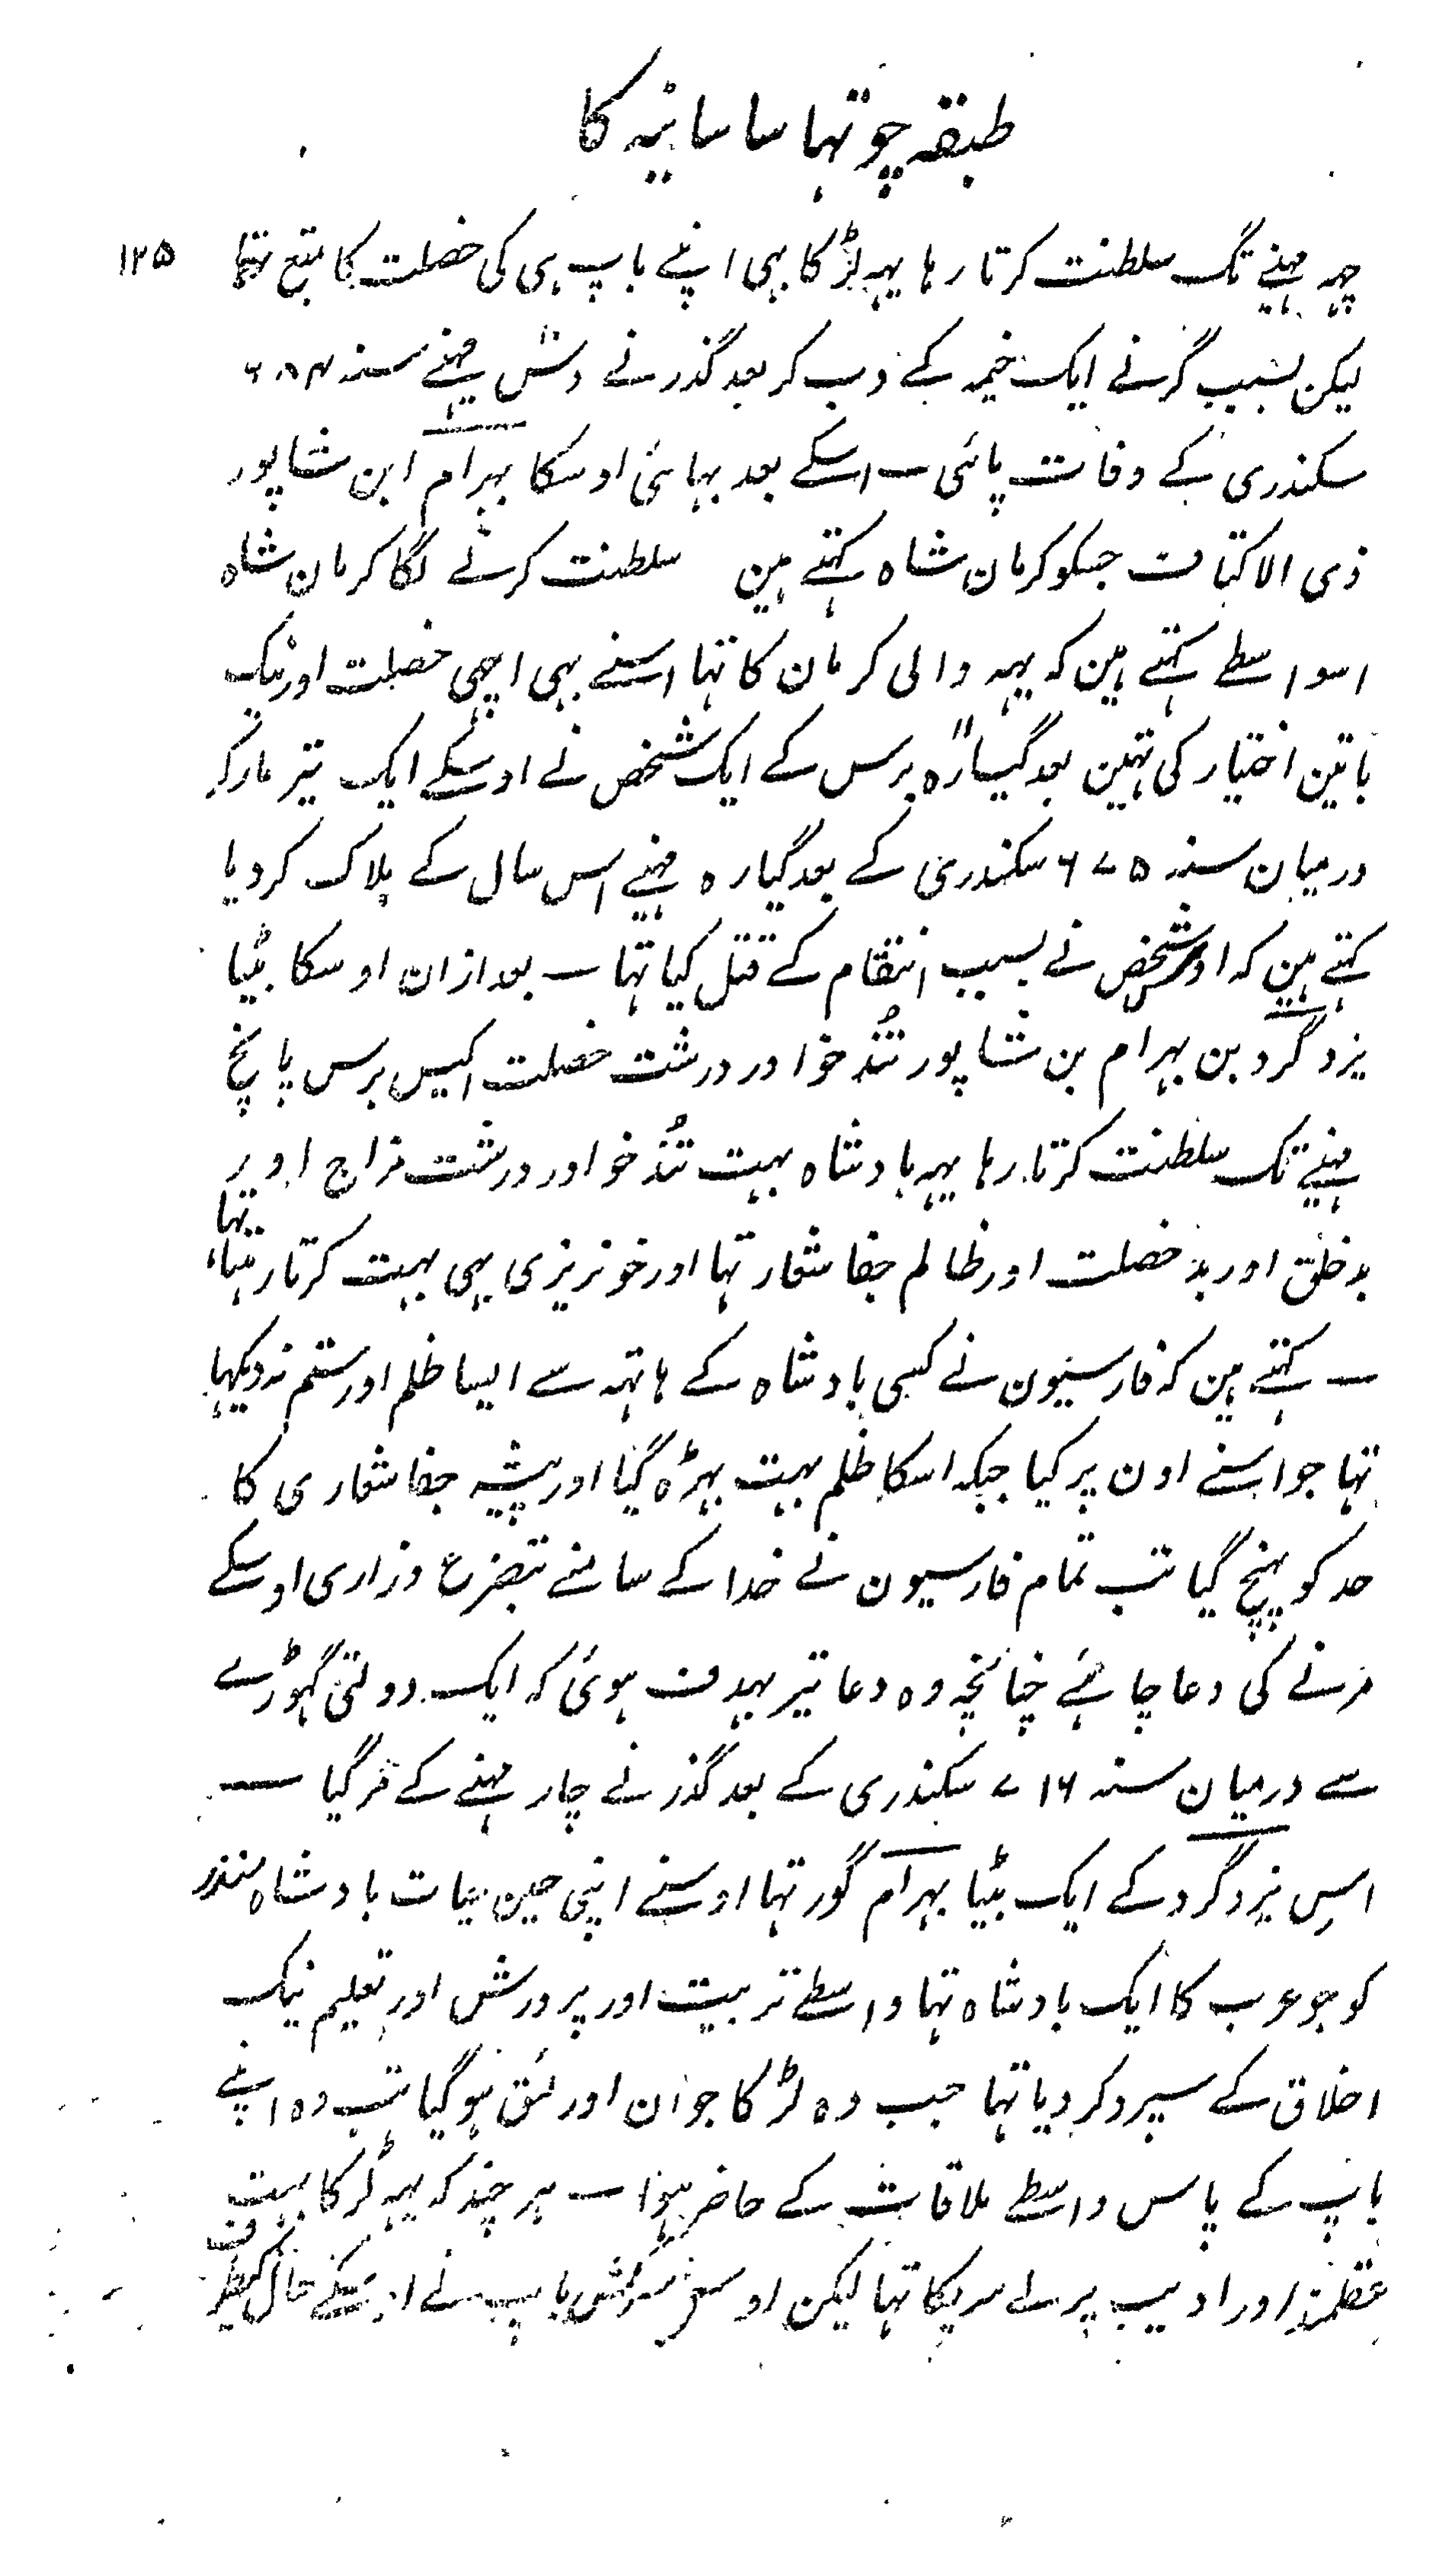 طبقہ چوتہا ساسانیہ کا
۱۲۵
چہہ مہینے تک سلطنت کرتا رہا یہہ لڑکا بہی اپنے باپ ہی کی خصلت کا متبع تہا
لیکن بسبب گرنے ایک خیمہ کے دب کر بعد گذرنے دس مہینے سنہ ۶۸۴
سکندری کے وفات پائی ــ اسکے بعد بہائی اوسکا بہرام ابن شاپور
ذی الاکتاف جسکو کرمان شاہ کہتے ہین سلطنت کرنے لگا کرمان شاہ
اسواسطے کہتے ہین کہ یہہ والی کرمان کا تہا اسنے بہی اچہی خصلت اور نیک
باتین اختیار کی تہین بعد گیارہ برس کے ایک شخص نے اوسکے ایک تیر مارکر
درمیان سنہ ۶۷۵ سکندری کے بعد گیارہ مہینے اس سال کے ہلاک کردیا
کہتے ہین کہ اوس شخص نے بسبب انتقام کے قتل کیا تہا ــ بعد ازان اوسکا بیٹا
یزدگرد بن بہرام بن شاپور تُند خو اور درشت خصلت اکیس برس پانچ
مہینے تک سلطنت کرتا رہا یہہ بادشاہ بہت تُند خو اور درشت مزاج اور
بدخلق اور بد خصلت اور ظالم جفا شعار تہا اور خونریزی بہی بہت کرتا رہتا تہا
ــ کہتے ہین کہ فارسیون نے کسی بادشاہ کے ہاتہہ سے ایسا ظلم اور ستم ندیکہا
تہا جو اسنے اون پر کیا جبکہ اسکا ظلم بہت بہڑہ گیا اور پیشہ جفا شعاری کا
حد کو پہنچ گیا تب تمام فارسیون نے خدا کے سامنے بتضرع و زاری اوسکے
مرنے کی دعا چاہئے چنانچہ وہ دعا تیر بہدف ہوئی کہ ایک دولتی گہوڑے
سے درمیان سنہ ۷۱۶ سکندری کے بعد گذرنے چار مہینے کے مرگیا ــ
اس یزدگرد کے ایک بیٹا بہرام گور تہا اوسنے اپنی حین حیات بادشاہ منذر
کو جو عرب کا ایک بادشاہ تہا واسطے تربیت اور پرورش اور تعلیم نیک
اخلاق کے سپرد کردیا تہا جب وہ لڑکا جوان اور لئق ہوگیا تب وہ اپنے
باپ کے پاس واسطے ملاقات کے حاضر ہوا ــ ہر چند کہ یہہ لڑکا بہت
عقلمند اور ادیب پر لے سریکا تہا لیکن اوس باپ نے اوسکے حال کیطرف